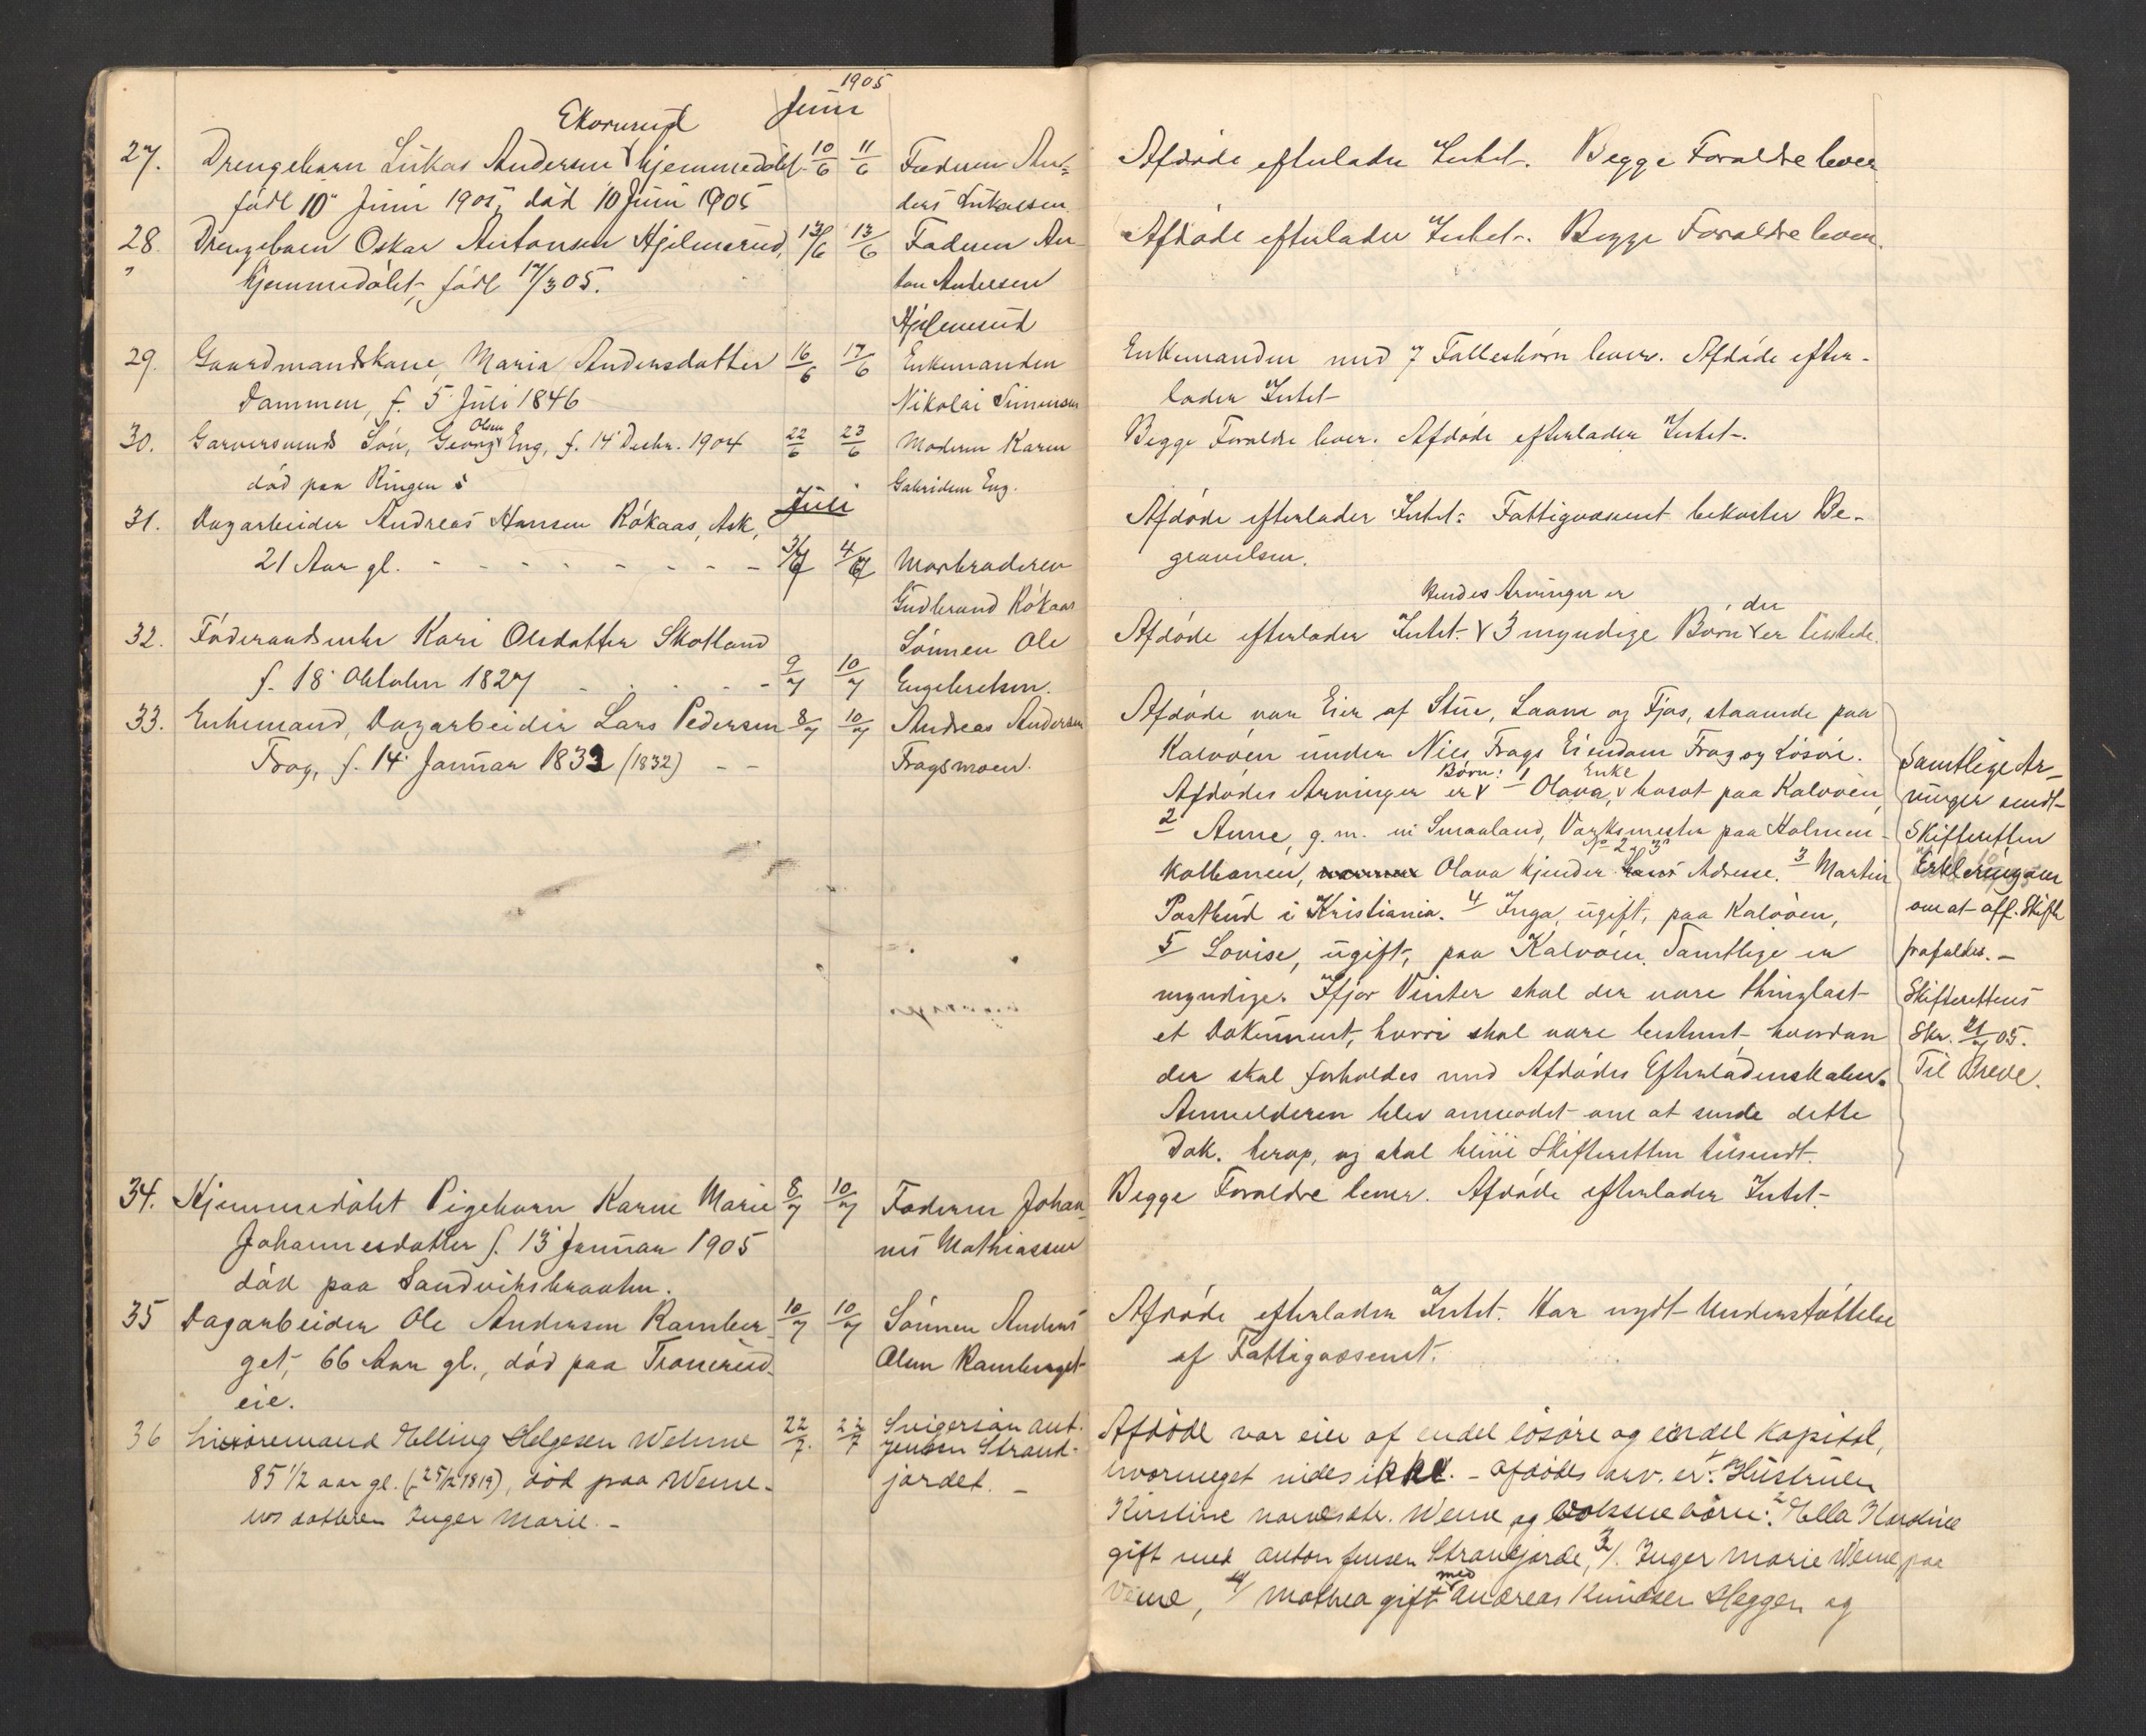 1905
Juni
Ekornrud
27. Drengebarn Lukas Andersen hjemmedøbt 10/6 11/6 Faderen An-
født 10' Juni 1905, död 10 Juni 1905 ders Lukassen
28. Drengebarn Oskar Antonsen Hjelmerud, 13/6 13/6 Faderen An-
" hjemmedøbt, født 17/3 05. ton Andersen
Hjelmerud
29. Gaardmandskone, Maria Andersdatter 16/6 17/6 Enkemanden
Dammen, f. 5' Juli 1846 Nikolai Simensen
30. Garversvends Søn, Georg Olsen Eng, f. 14' Decbr. 1904 22/6 23/6 Moderen Karen
død paa Ringen Gabrielsen Eng.
Juli
31. Dagarbeider Andreas Hansen Rökaas, Ask,
21 Aar gl. - - - - - - - 3/7 4/7 Morbroderen
Gudbrand Rökaas
32. Föderaadsenke Kari Olsdatter Skotland Sönnen Ole
f. 18' Oktober 1827 - - - - 9/7 10/7 Engebretsen.
33. Enkemand, Dagarbeider Lars Pedersen 8/7 10/7 Andreas Andersen
Frog, f. 14' Januar 1832 (1832) - - Frogsmoen.
34. Hjemmedøbt Pigebarn Karen Marie 8/7 10/7 Faderen Johan-
Johannesdatter f. 13' Januar 1905 nes Mathiassen
död paa Sandviksbraaten.
35 Dagarbeider Ole Andersen Ramber- 10/7 10/7 Sönnen Anders
get, 66 Aar gl., död paa Tronerud- Olsen Ramberget
eie.
36 Elling Helgesen Weme 22/7. 22/7 Svigersøn Ant.
85 1/2 aar gl. (25/12 1819), död paa Weme- Jensen Strand-
hos datteren Inger Marie. - jordet. -
Afdøde efterlader Intet. Begge Forældre lever
Afdøde efterlader Intet. Begge Forældre lever.
Enkemanden med 7 Fællesbørn lever. Afdøde efter-
lader Intet
Begge Forældre lever. Afdøde efterlader Intet.
Afdøde efterlader Intet. Fattigvæsenet bekoster Be-
gravelsen.
Hendes Arvinger er
Afdøde efterlader Intet. 3 myndige Børn der er
Afdøde var Eier af Stue, Laave og Fjøs, staaende paa
Kalvøen under Nils Frogs Eiendom Frog og Løsøre.
Afdødes Arvinger er Børn: 1 Olava, Enke bosat paa Kalvøen,
2 Anne, g. m. en Smaaland, Værksmester paa Holmen-
kolbanen, Olava kjender No 2 og 3s Adresse. 3 Martin
Postbud i Kristiania. 4 Inga, ugift, paa Kalvøen,
5 Lovise, ugift, paa Kalvøen. Samtlige er
myndige. Ifjor Vinter skal der være thinglæst
et Dokument, hvori skal være bestemt, hvordan
der skal forholdes med Afdødes Efterladenskaber.
Anmelderen blev anmodet om at sende dette
Dok. herop, og skal blive Skifteretten tilsendt.
Samtlige Ar-
vinger sendt
Skifteretten
Erklæring om
om at off. Skifte
frafaldes. -
Skifterettens
Skr. 21/7 05.
Til Breve.
Begge Forældre lever. Afdøde efterlader Intet.
Afdøde efterlader Intet. Har nydt Understøttelse
af Fattigvæsenet.
Afdöde var eier af endel løsøre og endel kapital,
hvormeget vides ikke. - Afdødes arv. er: 1 Hustruen
Kirstine Weme og voksne børn: 2 Ella
gift med Anton Jensen Strandjorde, 3/. Inger Marie Weme paa
Veme, 4/ Mathea gift med Andreas Knudsen Heggen og